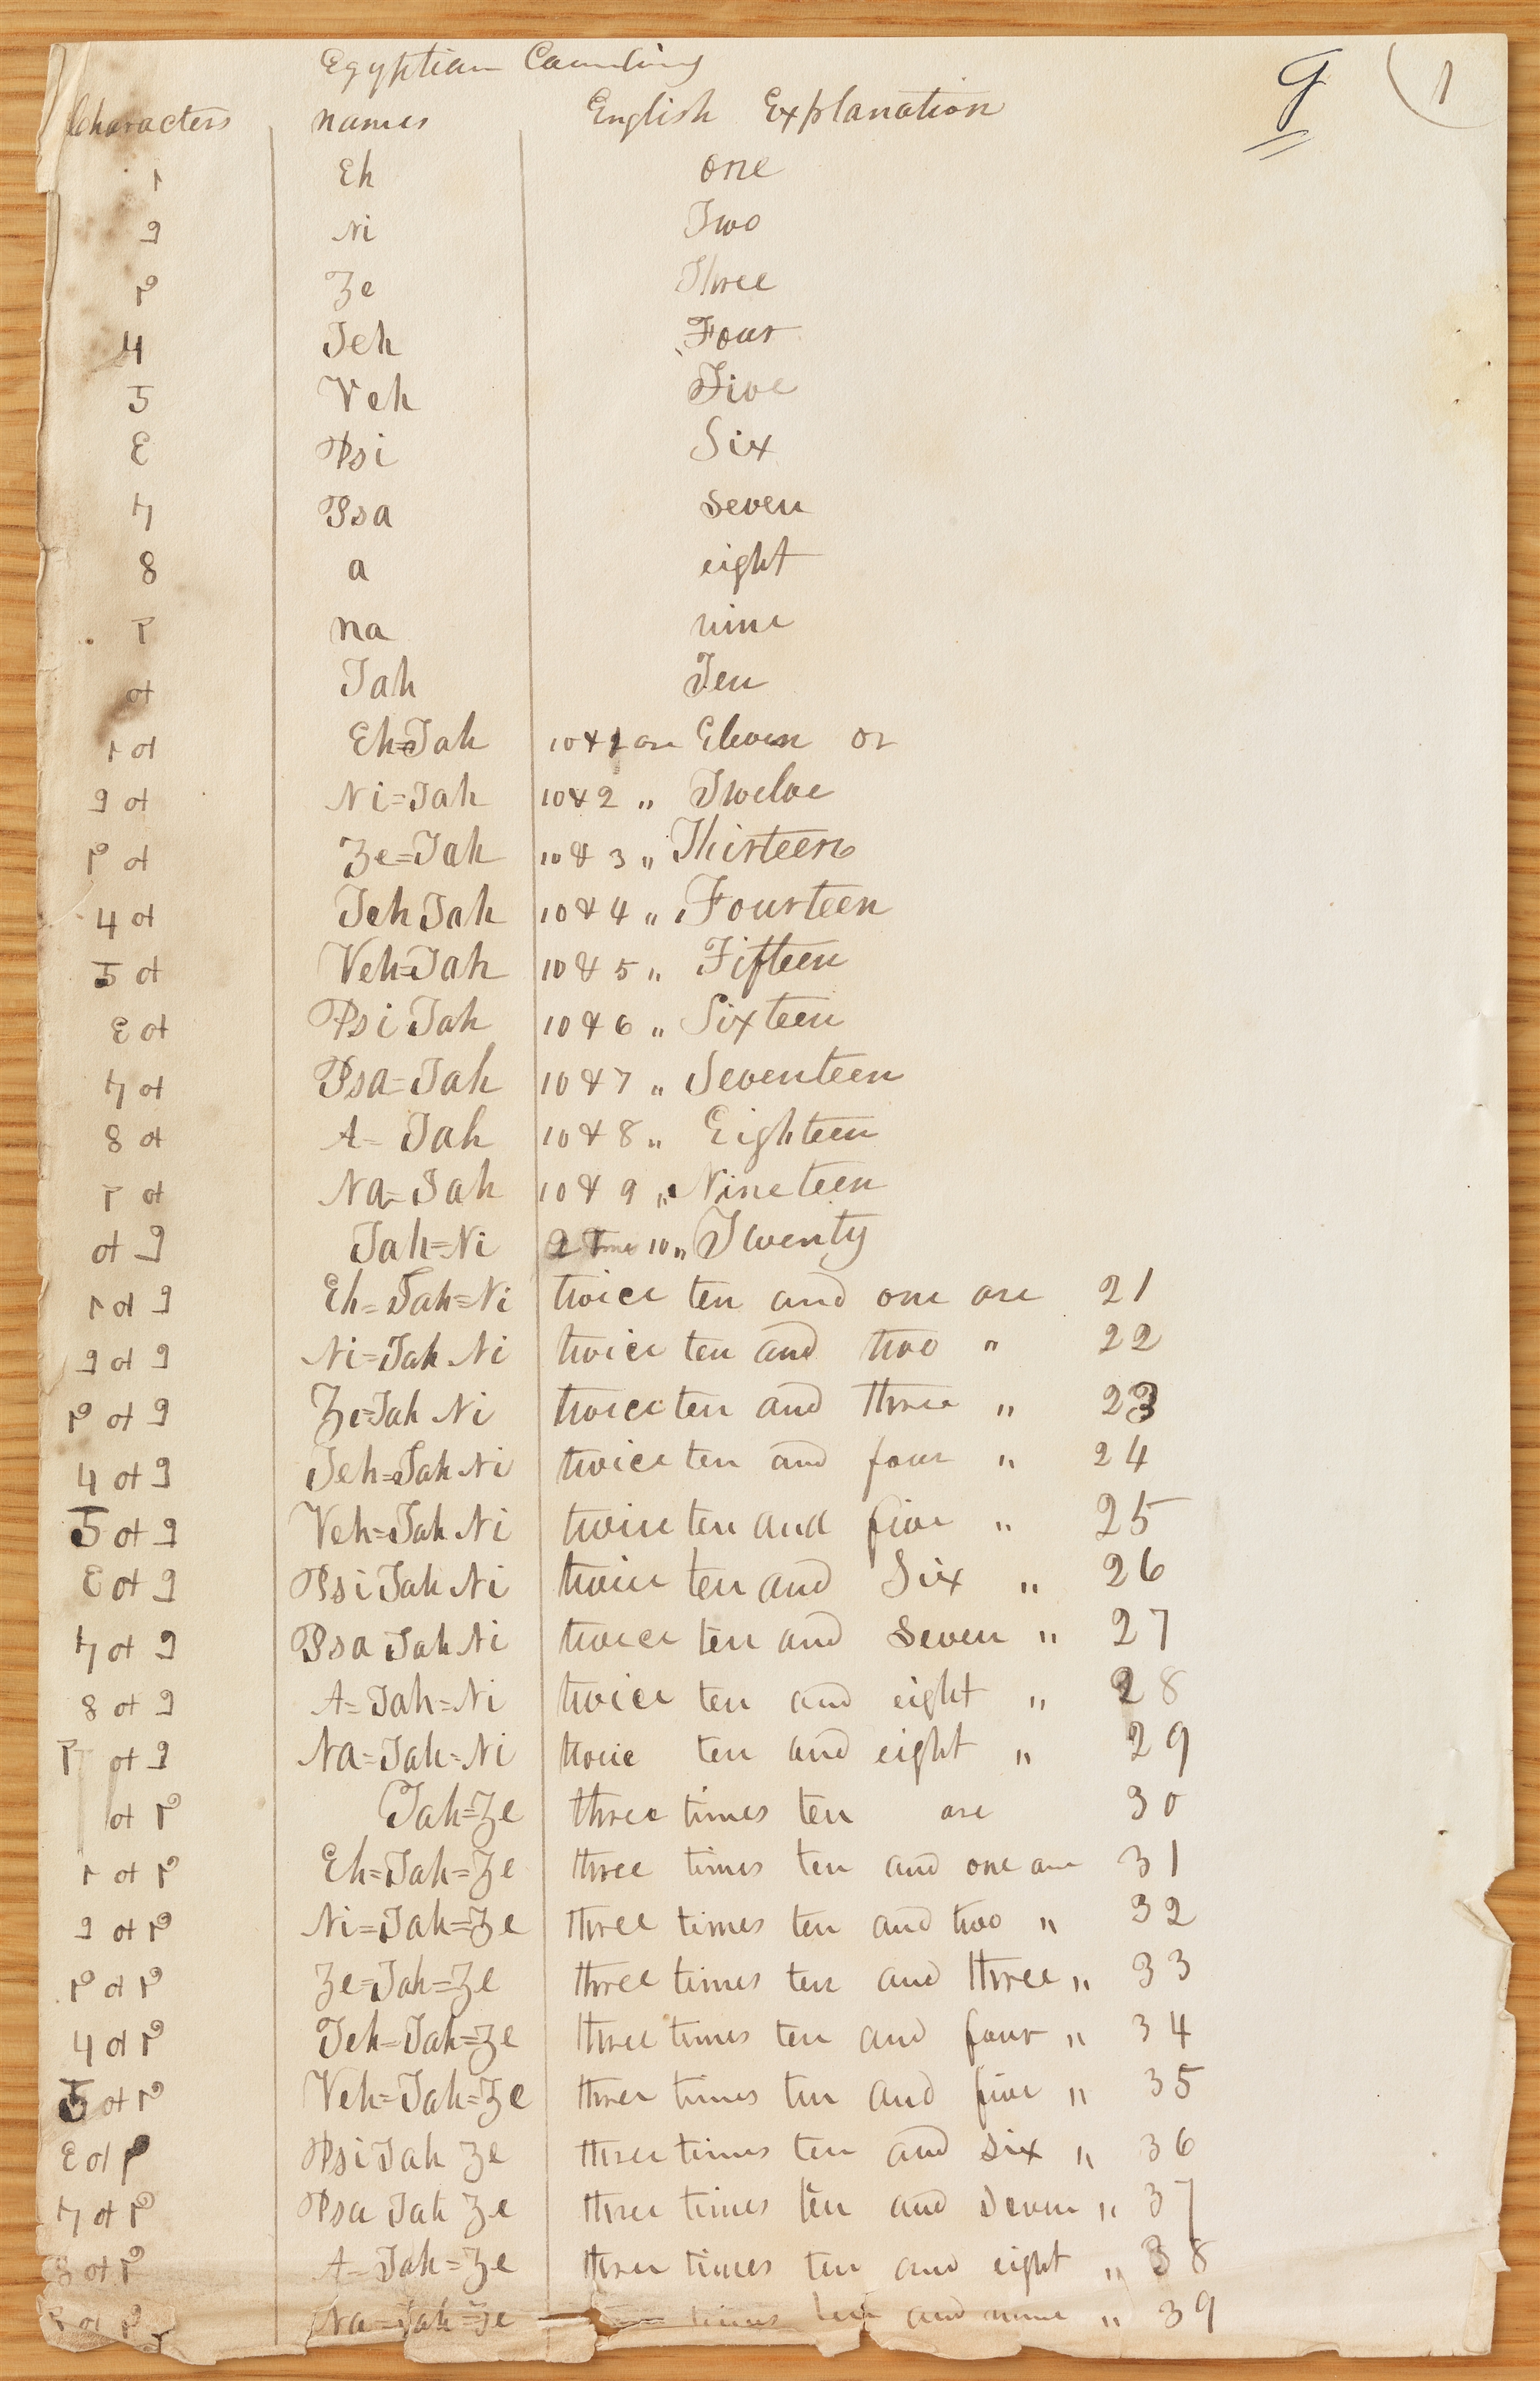 Egyptian Counting
9 1
Characters names English Explanation
Eh one
Ni Two
Ze Three
4 Teh Four
Veh Five
Psi Six
Psa Seven
8 a eight
na nine
Tah Ten
Eh=Tah 10 & 1 are Eleven or
Ni=Tah 10 & 2 " Twelve
Ze=Tah 10 & 3 " Thirteen
4 Teh Tah 10 & 4 " Fourteen
Veh=Tah 10 & 5 " Fifteen
Psi Tah 10 & 6 " Sixteen
Psa=Tah 10 & 7 " Seventeen
8 A= Tah 10 & 8 " Eighteen
Na=Tah 10 & 9 " Nineteen
Tah=Ni 2 Time 10 " Twenty
Eh=Tah=Ni twice ten and one are 21
Ni=Tah Ni twice ten and two " 22
Ze=Tah Ni twice ten and three " 23
4 Teh=Tah Ni twice ten and four " 24
Veh=Tah Ni twice ten and five " 25
Psi Tah Ni twice ten and Six " 26
Psa Tah Ni twice ten and Seven " 27
8 A=Tah=Ni twice ten and eight " 28
Na=Tah=Ni twice ten and eight " 29
Tah=Ze three times ten are 30
Eh=Tah=Ze three times ten and one are 31
Ni=Tah=Ze three times ten and two " 32
Ze=Tah=Ze three times ten and three " 33
4 Teh=Tah=Ze three times ten and four " 34
Veh=Tah=Ze three times ten and five " 35
Psi Tah Ze three times ten and six " 36
Psa Tah Ze three times ten and Seven " 37
8 A=Tah=Ze three times ten and eight " 38
Na=Tah=Ze times ten and nine " 39